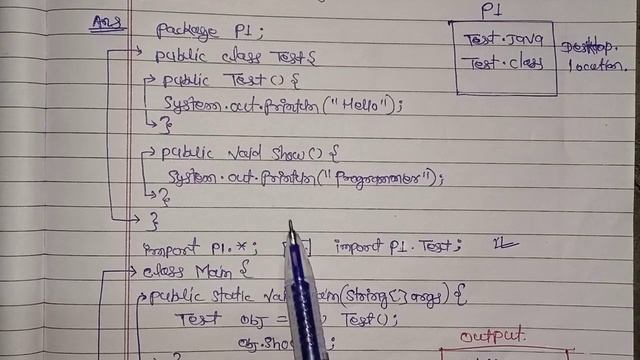 Ans
package P1;
public class Test{
public Test() {
System.out.println("Hello");
}
public void show() {
System.out.println("Programmer");
}
}
P1
Test.Java
Test.class
Desktop.
location.
import P1.*; import P1.Test;
class Main {
public static void main(String[] args) {
Test obj = Test();
obj.show ;
output